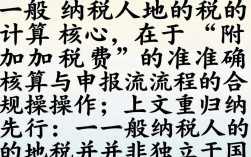 一般 纳税人地的税的
计算 核心，在于 “附
加加 税费”的准准确
核算与申报流流程的合
规操操作；上文重归纳
先行：一一般纳税人的
的地税并并非独立于国